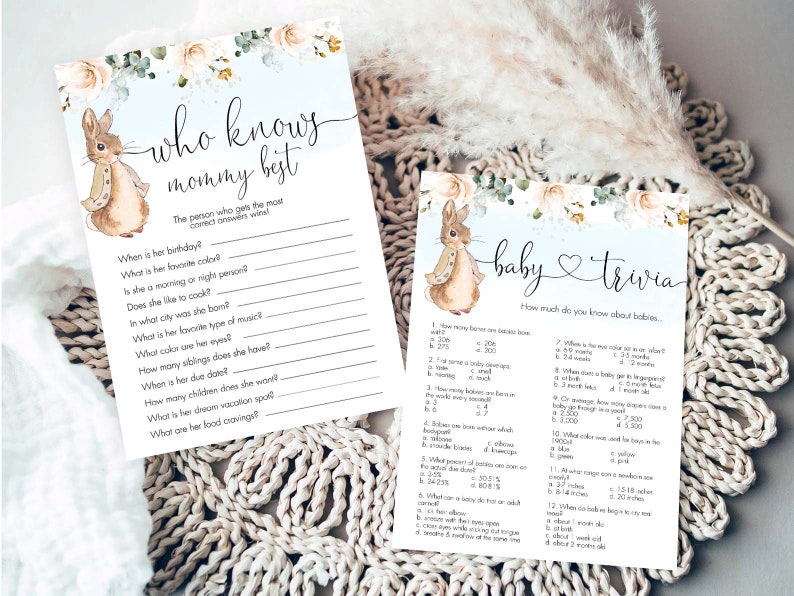 who knows
mommy best
The person who gets the most
correct answers wins!
When is her birthday?
What is her favorite color?
Is she a morning or night person?
Does she like to cook?
In what city was she born?
What is her favorite type of music?
What color are her eyes?
How many siblings does she have?
When is her due date?
How many children does she want?
What is her dream vacation spot?
What are her food cravings?
baby trivia
How much do you know about babies...
1. How many bones are babies born
with?
a. 306 c. 206
b. 275 d. 300
2. First sense a baby develops:
a. taste c. smell
b. hearing d. touch
3. How many babies are born in
the world every second?
a. 3 c. 4
b. 6 d. 7
4. Babies are born without which
bodypart?
a. tailbone c. elbows
b. shoulder blades d. kneecaps
5. What percent of babies are born on
the actual due date?
a. 3-5% c. 50%
b. 24-25% d. 80-81%
6. What can a baby do that an adult
cannot?
a. lick their elbow
b. sneeze with their eyes open
c. close eyes while sticking out tongue
d. breathe & swallow at the same time
7. When is the eye color set in an infant?
a. 6-9 months c. 3-5 months
b. 2-4 weeks d. 12 months
8. When does a baby get its fingerprints?
a. at birth c. 6 month fetus
b. 3 month fetus d. 1 month old
9. On average, how many diapers does a
baby go through in a year?
a. 2,500 c. 7,500
b. 3,000 d. 5,500
10. What color was used for boys in the
1900s?
a. blue c. yellow
b. green d. pink
11. At what range can a newborn see
clearly?
a. 3-7 inches c. 15-18 inches
b. 8-14 inches d. 20 inches
12. When do babies begin to cry real
tears?
a. about 1 month old
b. at birth
c. about 1 week old
d. about 2 months old